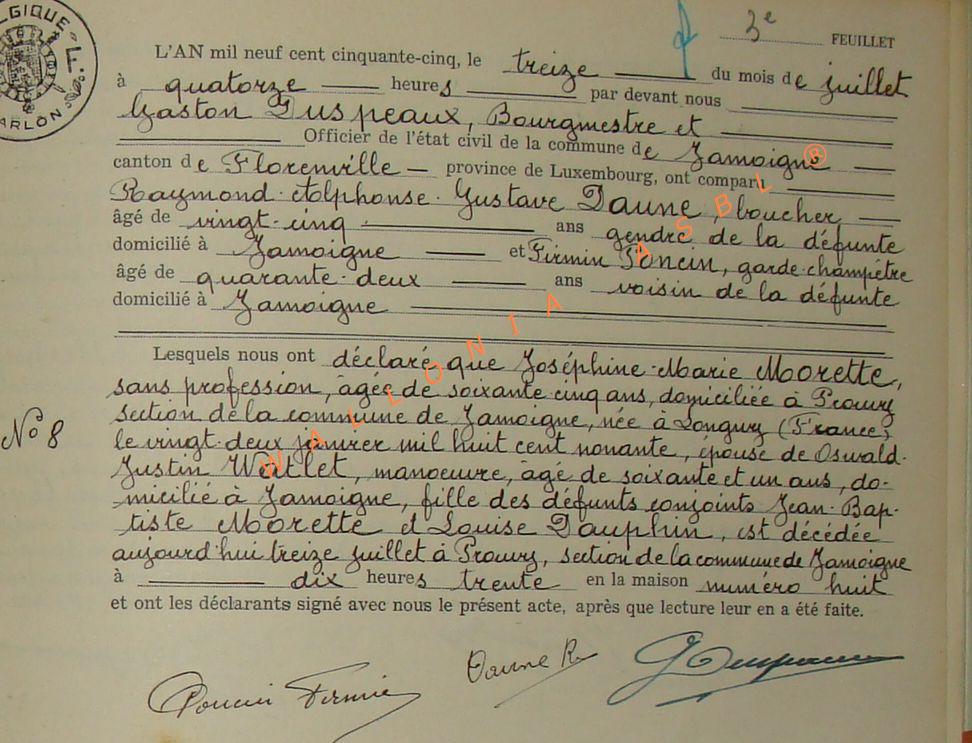 LGIQUE - F.
ARLON
3e FEUILLET
L'AN mil neuf cent cinquante-cinq, le treize du mois de juillet
à quatorze heures par devant nous
Gaston Duspeaux, Bourgmestre et
Officier de l'état civil de la commune de Jamoigne
canton de Florenville — province de Luxembourg, ont comparu
Raymond-Alphonse-Gustave Daune, boucher
âgé de vingt-cinq ans gendre de la défunte
domicilié à Jamoigne et Firmin Poncin, garde-champêtre
âgé de quarante-deux ans voisin de la défunte
domicilié à Jamoigne
Lesquels nous ont déclaré que Joséphine-Marie Morette,
sans profession, âgée de soixante-cinq ans, domiciliée à Prouvy
section de la commune de Jamoigne, née à Longwy (France)
No 8
le vingt-deux janvier mil huit cent nonante, épouse de Oswald-
Justin Watlet, manœuvre, âgé de soixante et un ans, do-
micilié à Jamoigne, fille des défunts conjoints Jean-Bap-
tiste Morette et Louise Dauphin, est décédée
aujourd'hui treize juillet à Prouvy, section de la commune de Jamoigne
à dix heures trente en la maison numéro huit
et ont les déclarants signé avec nous le présent acte, après que lecture leur en a été faite.
Poncin Firmin Daune R
WALLONIA ASBL ®